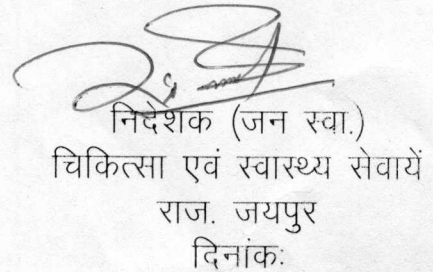 निदेशक (जन स्वा.)
चिकित्सा एवं स्वास्थ्य सेवायें
राज. जयपुर
दिनांक: